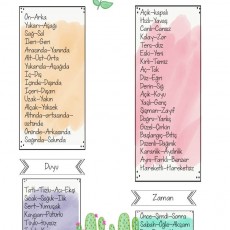 Ön-Arka
Yukarı-Aşağı
Sağ-Sol
İleri-Geri
Arasında-Yanında
Alt-Üst-Orta
Yukarıda-Aşağıda
İç-Dış
İçinde-Dışında
İçeri-Dışarı
Uzak-Yakın
Alçak-Yüksek
Altında-ortasında-
üstünde
Önünde-Arkasında
Sağında-Solunda
Duyu
Tatlı-Tuzlu-Acı-Ekşi
Sıcak-Soğuk-Ilık
Sert-Yumuşak
Kaygan-Pütürlü
Açık-kapalı
Hızlı-Yavaş
Canlı-Cansız
Kolay-Zor
Ters-düz
Eski-Yeni
Kirli-Temiz
Aç-Tok
Düz-Eğri
Derin-Sığ
Açık-Koyu
Yaşlı-Genç
Şişman-Zayıf
Doğru-Yanlış
Güzel-Çirkin
Başlangıç-Bitiş
Düzenli-Dağınık
Karanlık-Aydınlık
Ayrı-Farklı-Benzer
Hareketli-Hareketsiz
Zaman
Önce-Şimdi-Sonra
Sabah-Öğle-Akşam